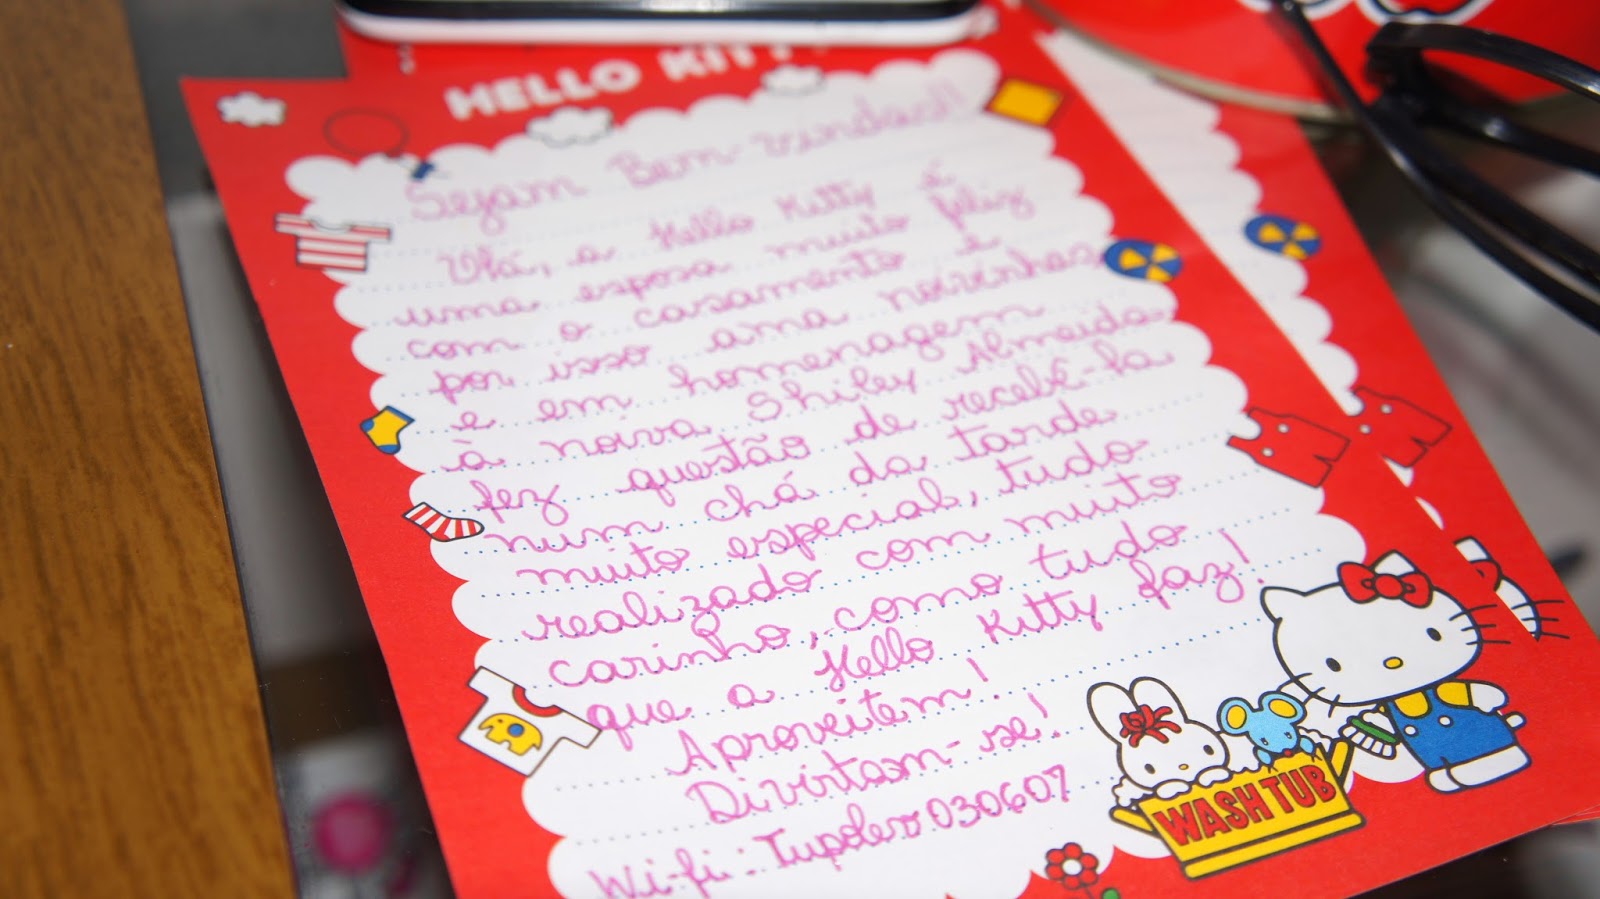 HELLO KITTY
Sejam Bem-vindas!!
Olá, a Hello Kitty é
uma esposa muito feliz
com o casamento e
por isso ama noivinhas
e em homenagem
à noiva Shiley Almeida
fez questão de recebê-la
num chá da tarde
muito especial, tudo
realizado com muito
carinho, como tudo
que a Hello Kitty faz!
Aproveitem!
Divirtam-se!
Wi-fi: 030607
WASH TUB